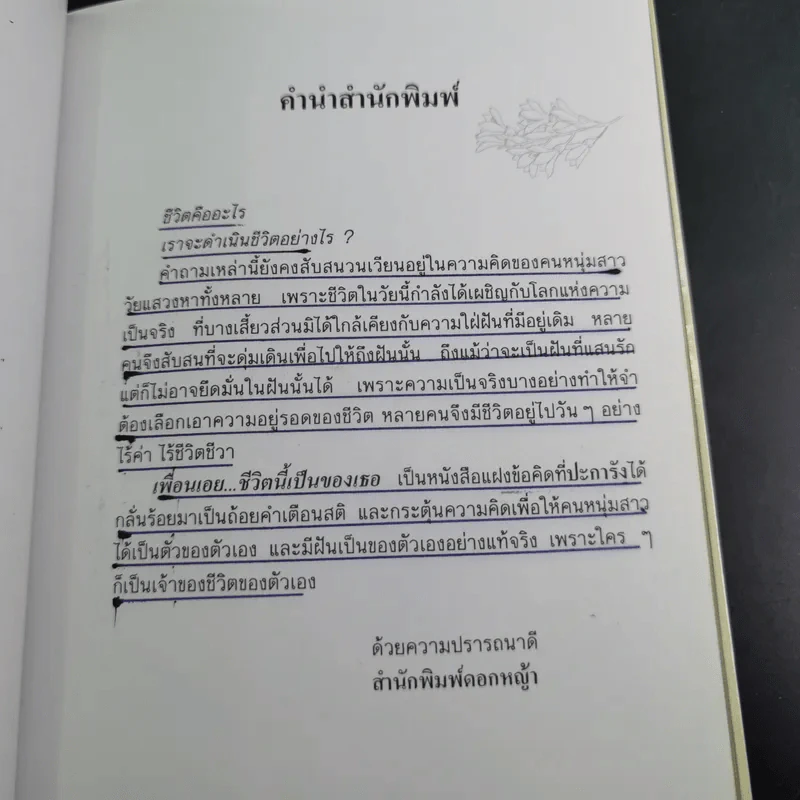 คำนำสำนักพิมพ์
ชีวิตคืออะไร
เราจะดำเนินชีวิตอย่างไร ?
คำถามเหล่านี้ยังคงสับสนวนเวียนอยู่ในความคิดของคนหนุ่มสาว
วัยแสวงหาทั้งหลาย เพราะชีวิตในวัยนี้กำลังได้เผชิญกับโลกแห่งความ
เป็นจริง ที่บางเสี้ยวส่วนมิได้ใกล้เคียงกับความใฝ่ฝันที่มีอยู่เดิม หลาย
คนจึงสับสนที่จะดุ่มเดินเพื่อไปให้ถึงฝันนั้น ถึงแม้ว่าจะเป็นฝันที่แสนรัก
แต่ก็ไม่อาจยึดมั่นในฝันนั้นได้ เพราะความเป็นจริงบางอย่างทำให้จำ
ต้องเลือกเอาความอยู่รอดของชีวิต หลายคนจึงมีชีวิตอยู่ไปวัน ๆ อย่าง
ไร้ค่า ไร้ชีวิตชีวา
เพื่อนเอย...ชีวิตนี้เป็นของเธอ เป็นหนังสือแฝงข้อคิดที่ปะการังได้
กลั่นร้อยมาเป็นถ้อยคำเตือนสติ และกระตุ้นความคิดเพื่อให้คนหนุ่มสาว
ได้เป็นตัวของตัวเอง และมีฝันเป็นของตัวเองอย่างแท้จริง เพราะใคร ๆ
ก็เป็นเจ้าของชีวิตของตัวเอง
ด้วยความปรารถนาดี
สำนักพิมพ์ดอกหญ้า